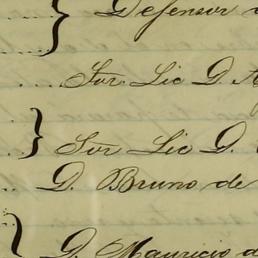 Defensor
Sor. Lic D.
Sor Lic D.
D. Bruno de
D. Mauricio